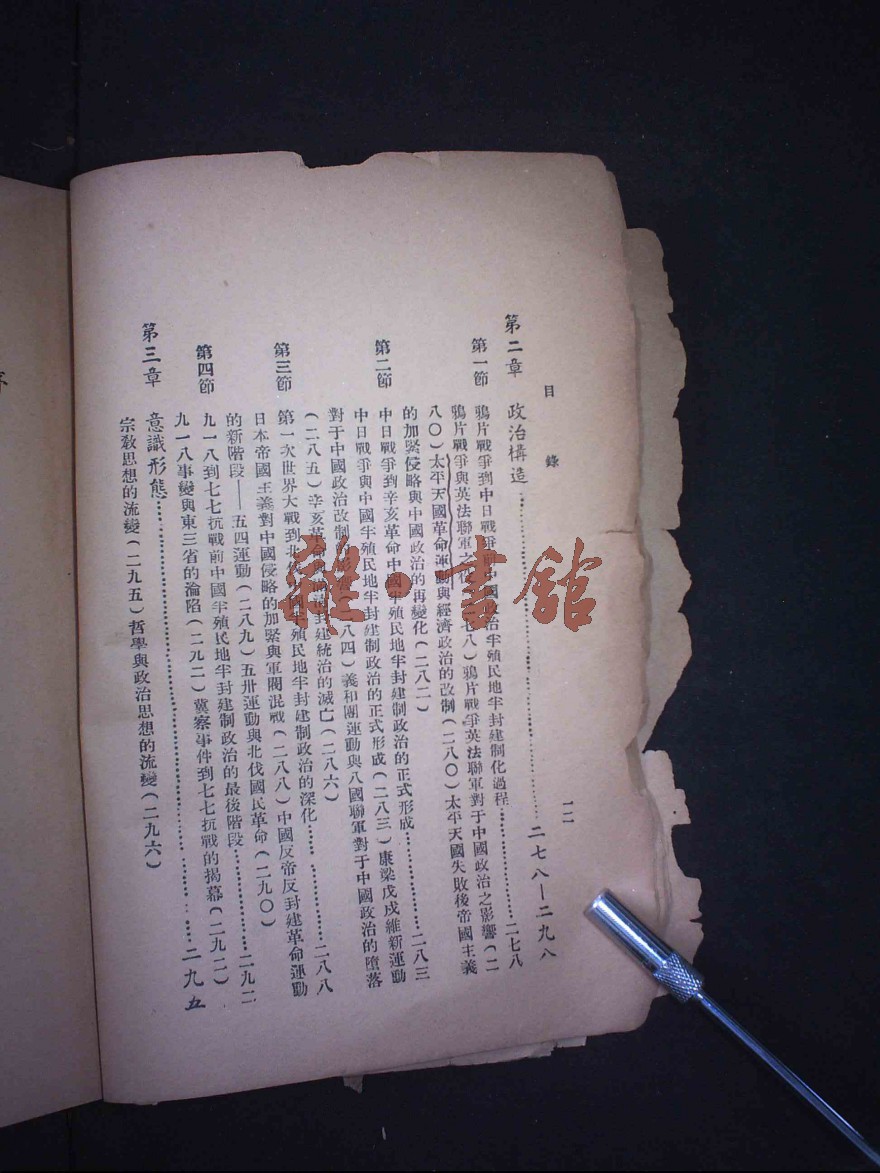 目錄
一二
第二章 政治構造……二七八—二九八
第一節 鴉片戰爭到中日戰爭前中國政治半殖民地半封建制化過程……二七八
鴉片戰爭與英法聯軍之役(二七八)鴉片戰爭英法聯軍對于中國政治之影響(二
八〇)太平天國革命運動與經濟政治的改制(二八〇)太平天國失敗後帝國主義
的加緊侵略與中國政治的再變化(二八二)
第二節 中日戰爭到辛亥革命中國半殖民地半封建制政治的正式形成……二八三
中日戰爭與中國半殖民地半封建制政治的正式形成(二八三)康梁戊戌維新運動
對于中國政治改制的影響(二八四)義和團運動與八國聯軍對于中國政治的墮落
(二八五)辛亥革命封建統治的滅亡(二八六)
第三節 第一次世界大戰到北伐中國半殖民地半封建制政治的深化……二八八
日本帝國主義對中國侵略的加緊與軍閥混戰(二八八)中國反帝反封建革命運動
的新階段——五四運動(二八九)五卅運動與北伐國民革命(二九〇)
第四節 九一八到七七抗戰前中國半殖民地半封建制政治的最後階段……二九二
九一八事變與東三省的淪陷(二九二)冀察事件到七七抗戰的揭幕(二九二)
第三章 意識形態……二九五
宗教思想的流變(二九五)哲學與政治思想的流變(二九六)
雜·書館